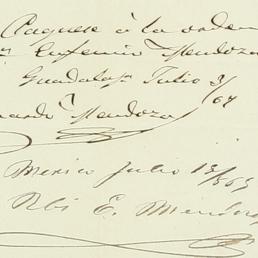 Paguese á la orden
Eugenio Mendoza
Guadalajª Julio 3/67
Mendoza
Mexico Julio 13/
Rbi E. Mendoza